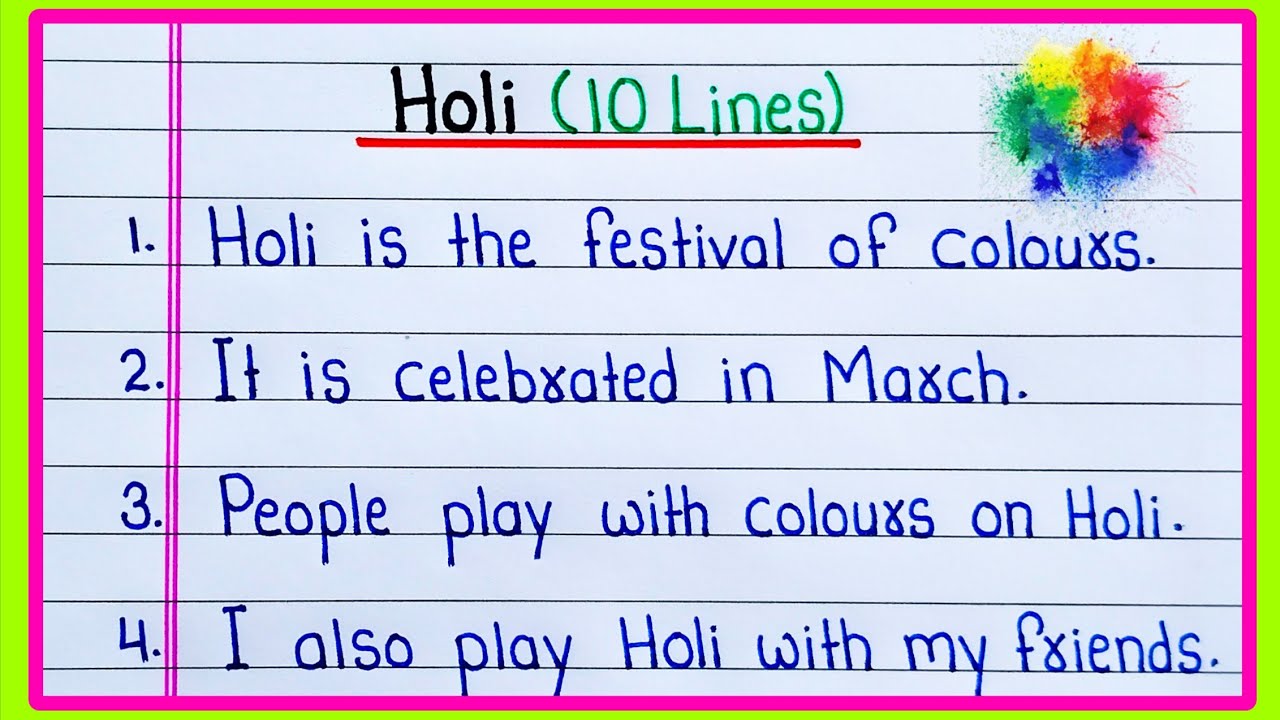 Holi (10 Lines)
1. Holi is the festival of colours.
2. It is celebrated in March.
3. People play with colours on Holi.
4. I also play Holi with my friends.